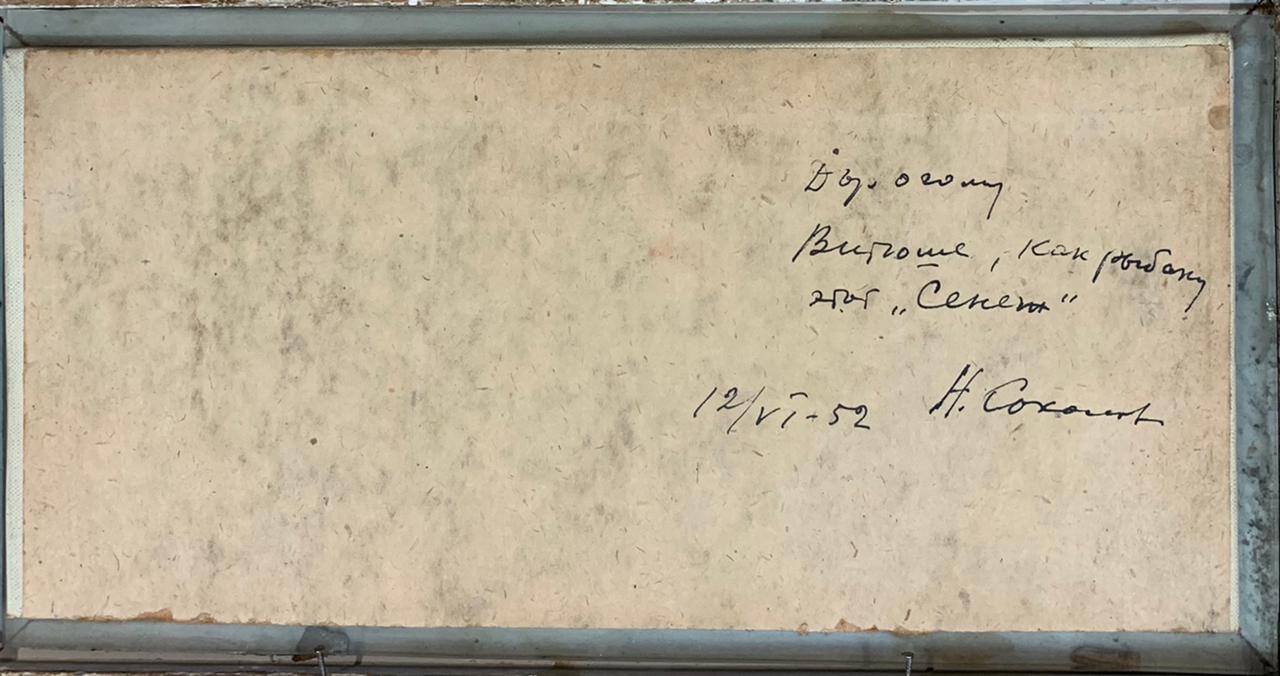 Дорогому
Витюше, как рыбаку
этот „Сенеж“
12/VI-52 Н. Соколов